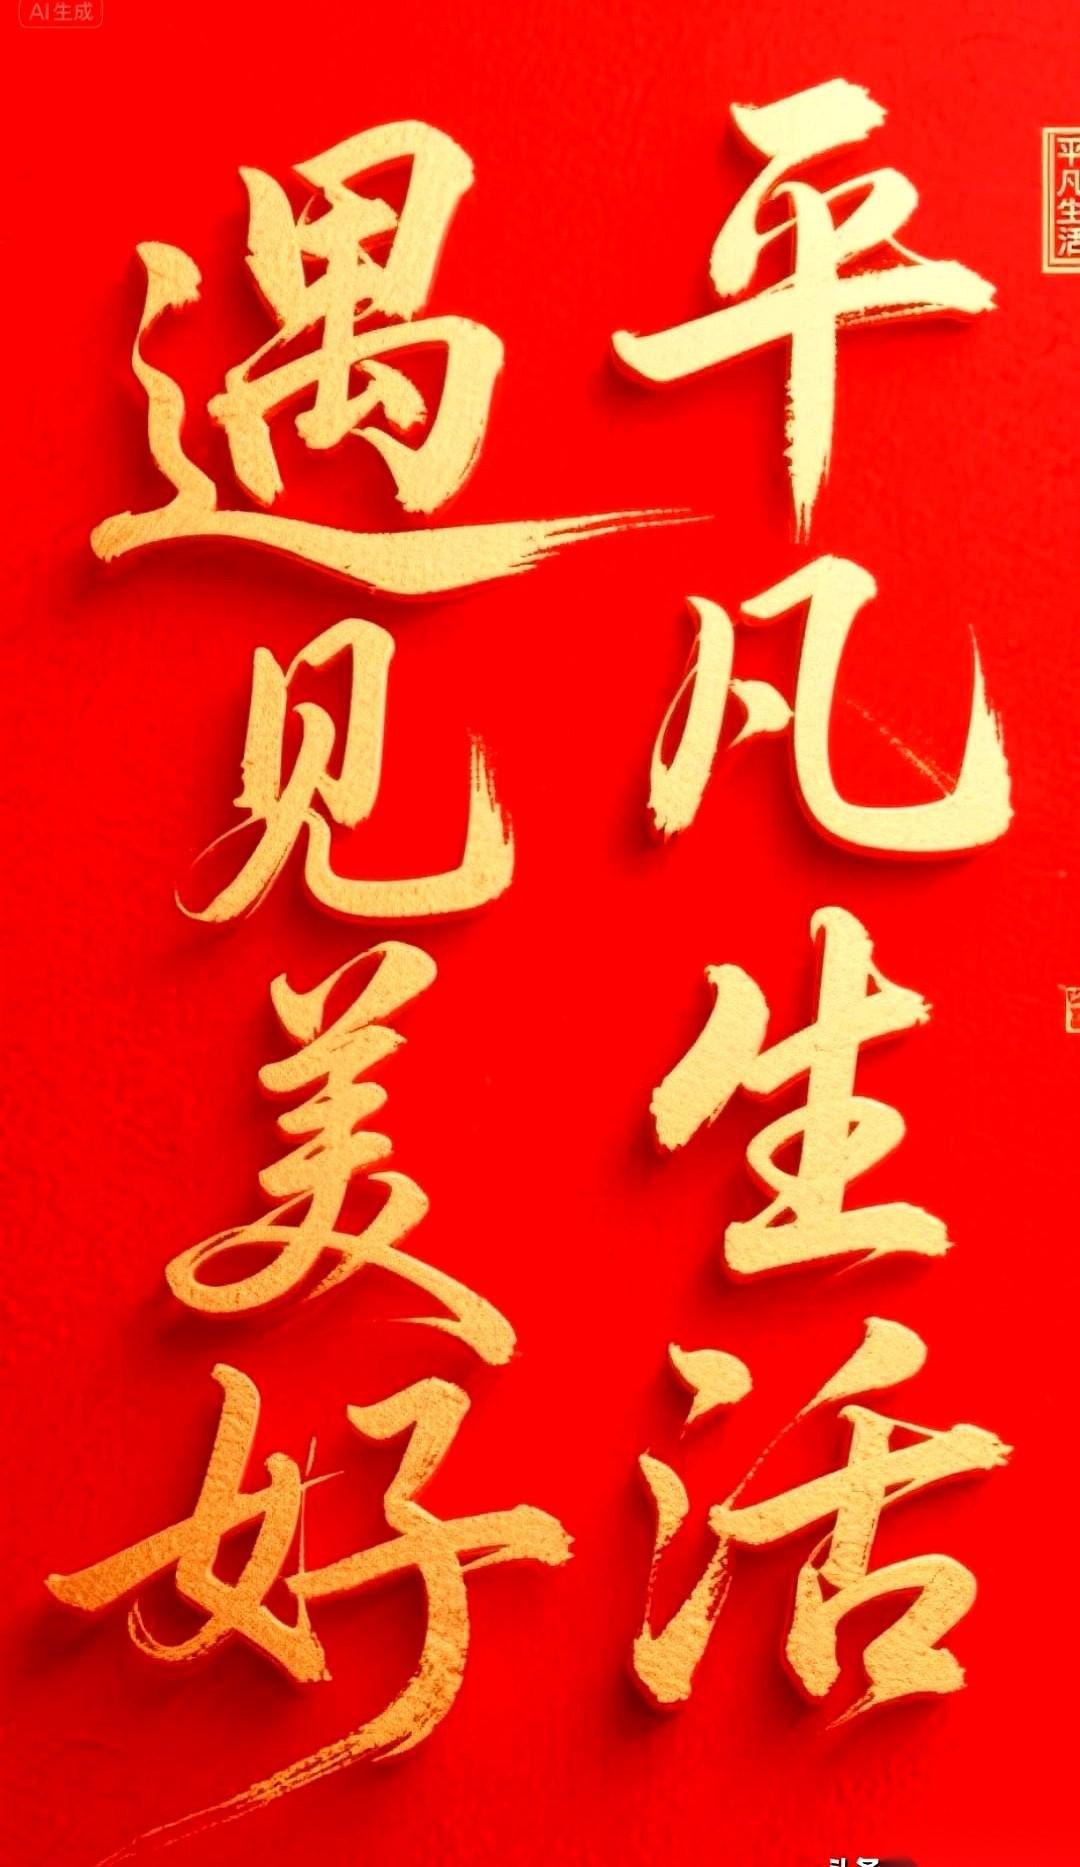 AI生成
平凡生活
平凡生活
遇见美好